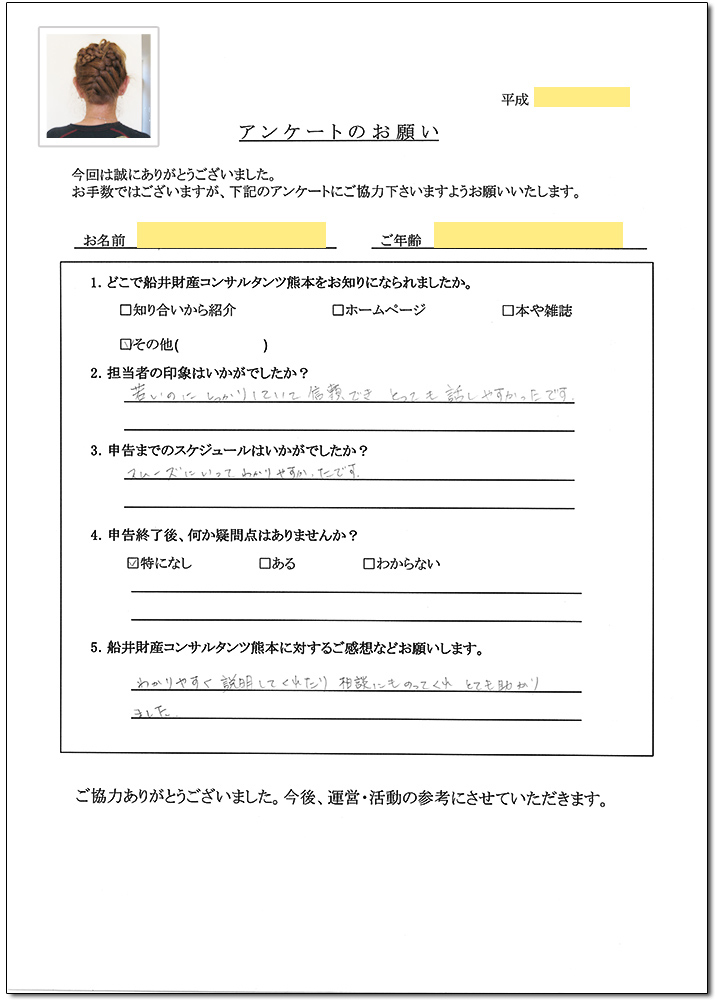 平成
アンケートのお願い
今回は誠にありがとうございました。
お手数ではございますが、下記のアンケートにご協力下さいますようお願いいたします。
お名前 ご年齢
1. どこで船井財産コンサルタンツ熊本をお知りになられましたか。
□知り合いから紹介 □ホームページ □本や雑誌
☑その他( )
2. 担当者の印象はいかがでしたか？
若いのにしっかりしていて 信頼でき とっても 話しやすかったです。
3. 申告までのスケジュールはいかがでしたか？
スムーズにいって わかりやすかったです。
4. 申告終了後、何か疑問点はありませんか？
☑特になし □ある □わからない
5. 船井財産コンサルタンツ熊本に対するご感想などお願いします。
わかりやすく 説明してくれたり 相談にものってくれ とても助かり
ました。
ご協力ありがとうございました。今後、運営・活動の参考にさせていただきます。